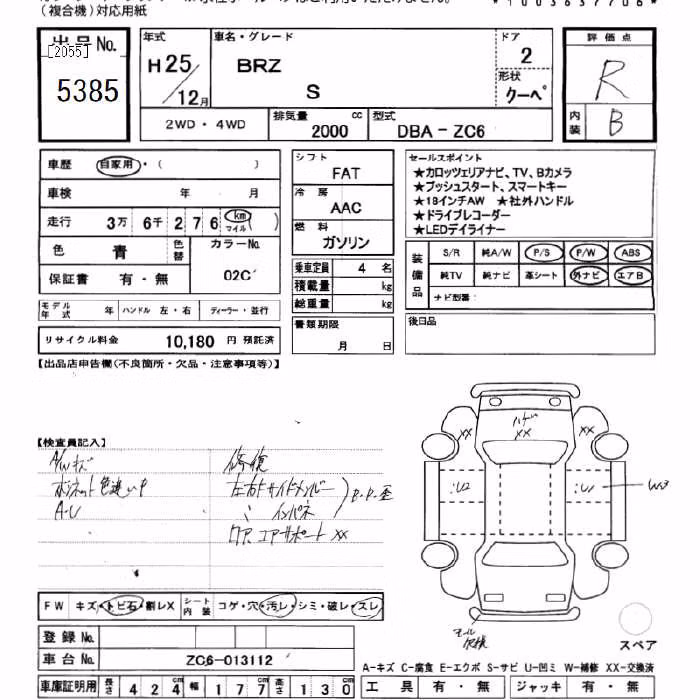 (複合機)対応用紙
*1003637706*
出品No.
[2055]
5385
年式
H25/12月
車名・グレード
BRZ
S
ドア
2
形状
クーペ
評価点
R
内装
B
2WD・4WD
排気量
2000
cc
型式
DBA-ZC6
車歴
自家用・( )
車検 年 月
走行 3万 6千 2 7 6 km マイル
色 青 色替 カラーNo. 02C
保証書 有・無
シフト
FAT
冷房
AAC
燃料
ガソリン
乗車定員 4 名
積載量 kg
総重量 kg
書類期限
月 日
セールスポイント
★カロッツェリアナビ、TV、Bカメラ
★プッシュスタート、スマートキー
★18インチAW ★社外ハンドル
★ドライブレコーダー
★LEDデイライナー
装備品
S/R 純A/W P/S P/W ABS
純TV 純ナビ 革シート 外ナビ エアB
ナビ型番:
後日品
モデル年式 年 ハンドル 左・右 ディーラー・並行
リサイクル料金 10,180 円 預託済
【出品店申告欄(不良箇所・欠品・注意事項等)】
【検査員記入】
A/Wキズ
ボンネット色違い
A-U
修復
左右Fサイドメンバー
〃 インパネ
エアサポート XX
XX
XX
XX
U2
U1
W3
FW キズ・トビ石・割レX
シート内装 コゲ・穴・汚レ・シミ・破レ・スレ
登録No.
車台No. ZC6-013112
車庫証明用 長さ 424cm 幅 177cm 高さ 130cm
スペア
A-キズ C-腐食 E-エクボ S-サビ U-凹ミ W-補修 XX-交換済
工具 有・無 ジャッキ 有・無